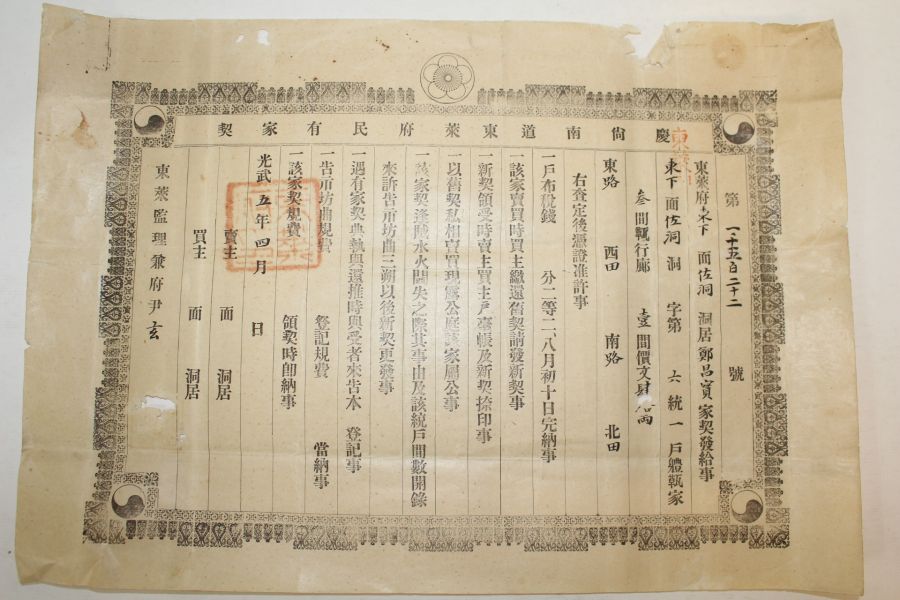 慶尙南道東萊府民有家契
第 一千五百二十二 號
東萊府東下面佐洞 洞居鄭昌寶家契發給事
東下面佐洞洞 字第 六統一戶體執家
叄間 行廊 壹間價文肆 兩
東路 西田 南路 北田
右査定後憑證准許事
一戶布稅錢 分二等二八月初十日完納事
一該家賣買時買主繳還舊契請發新契事
一新契領受時賣主買主戶臺帳及新契捺印事
一以舊契私相賣買現露公庭該家屬公事
一該家契逢賊水火閪失之際其事由及該統戶間數開錄
來訴告所坊曲三朔以後新契更發事
一遇有家契典執與還推時與受者來告本 登記事
一告所坊曲規費 登記規費 當納事
一該家契規費 領契時卽納事
光武五年四月 日
賣主 面 洞居
買主 面 洞居
東萊監理兼府尹玄